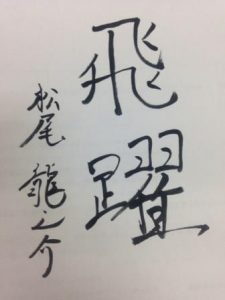 飛躍
松尾龍之介